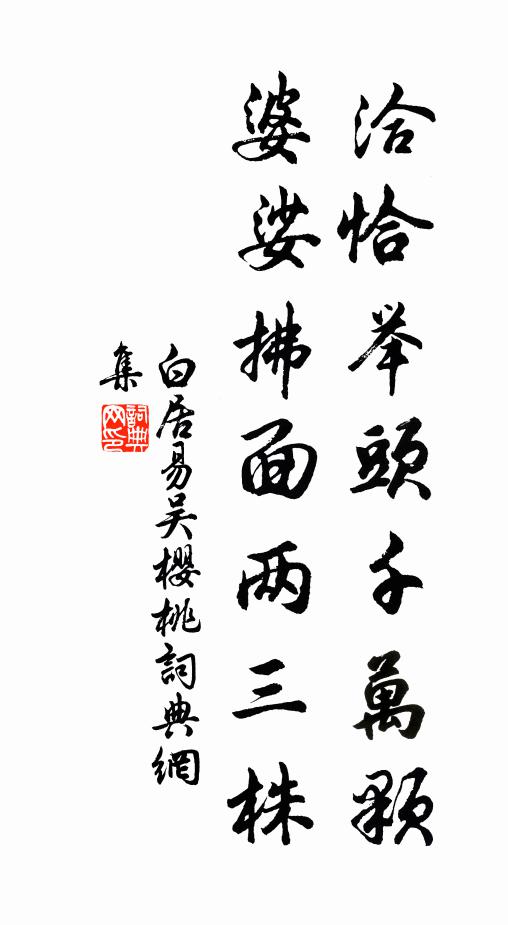 洽恰举頭千萬顆
婆娑拂面两三株
白居易吴櫻桃詞典網
集
詞典网印